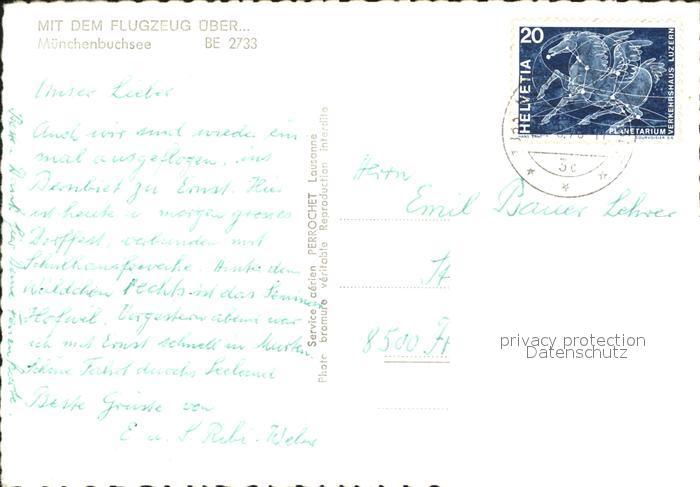 MIT DEM FLUGZEUG ÜBER...
Münchenbuchsee BE 2733
Unser Lieber
Auch wir sind wieder ein
mal ausgeflogen, ins
Bernbiet zu Ernst. Hier
ist heute u morgen grosses
Dorffest, verbunden mit
Schulhauseinweihe. Hinter dem
Wäldchen rechts ist das Seminar
Hofwil. Vorgestern abend war
ich mit Ernst schnell in Murten.
Schöne Fahrt durchs Seeland
Beste Grüsse von
E u. S Rebi-Weber
Service aérien PERROCHET Lausanne
Photo bromure véritable Reproduction interdite
HELVETIA
20
PLANETARIUM
VERKEHRSHAUS LUZERN
COURVOISIER
3c
Herrn
Emil Bauer Lehrer
St
8500 Fr
privacy protection
Datenschutz